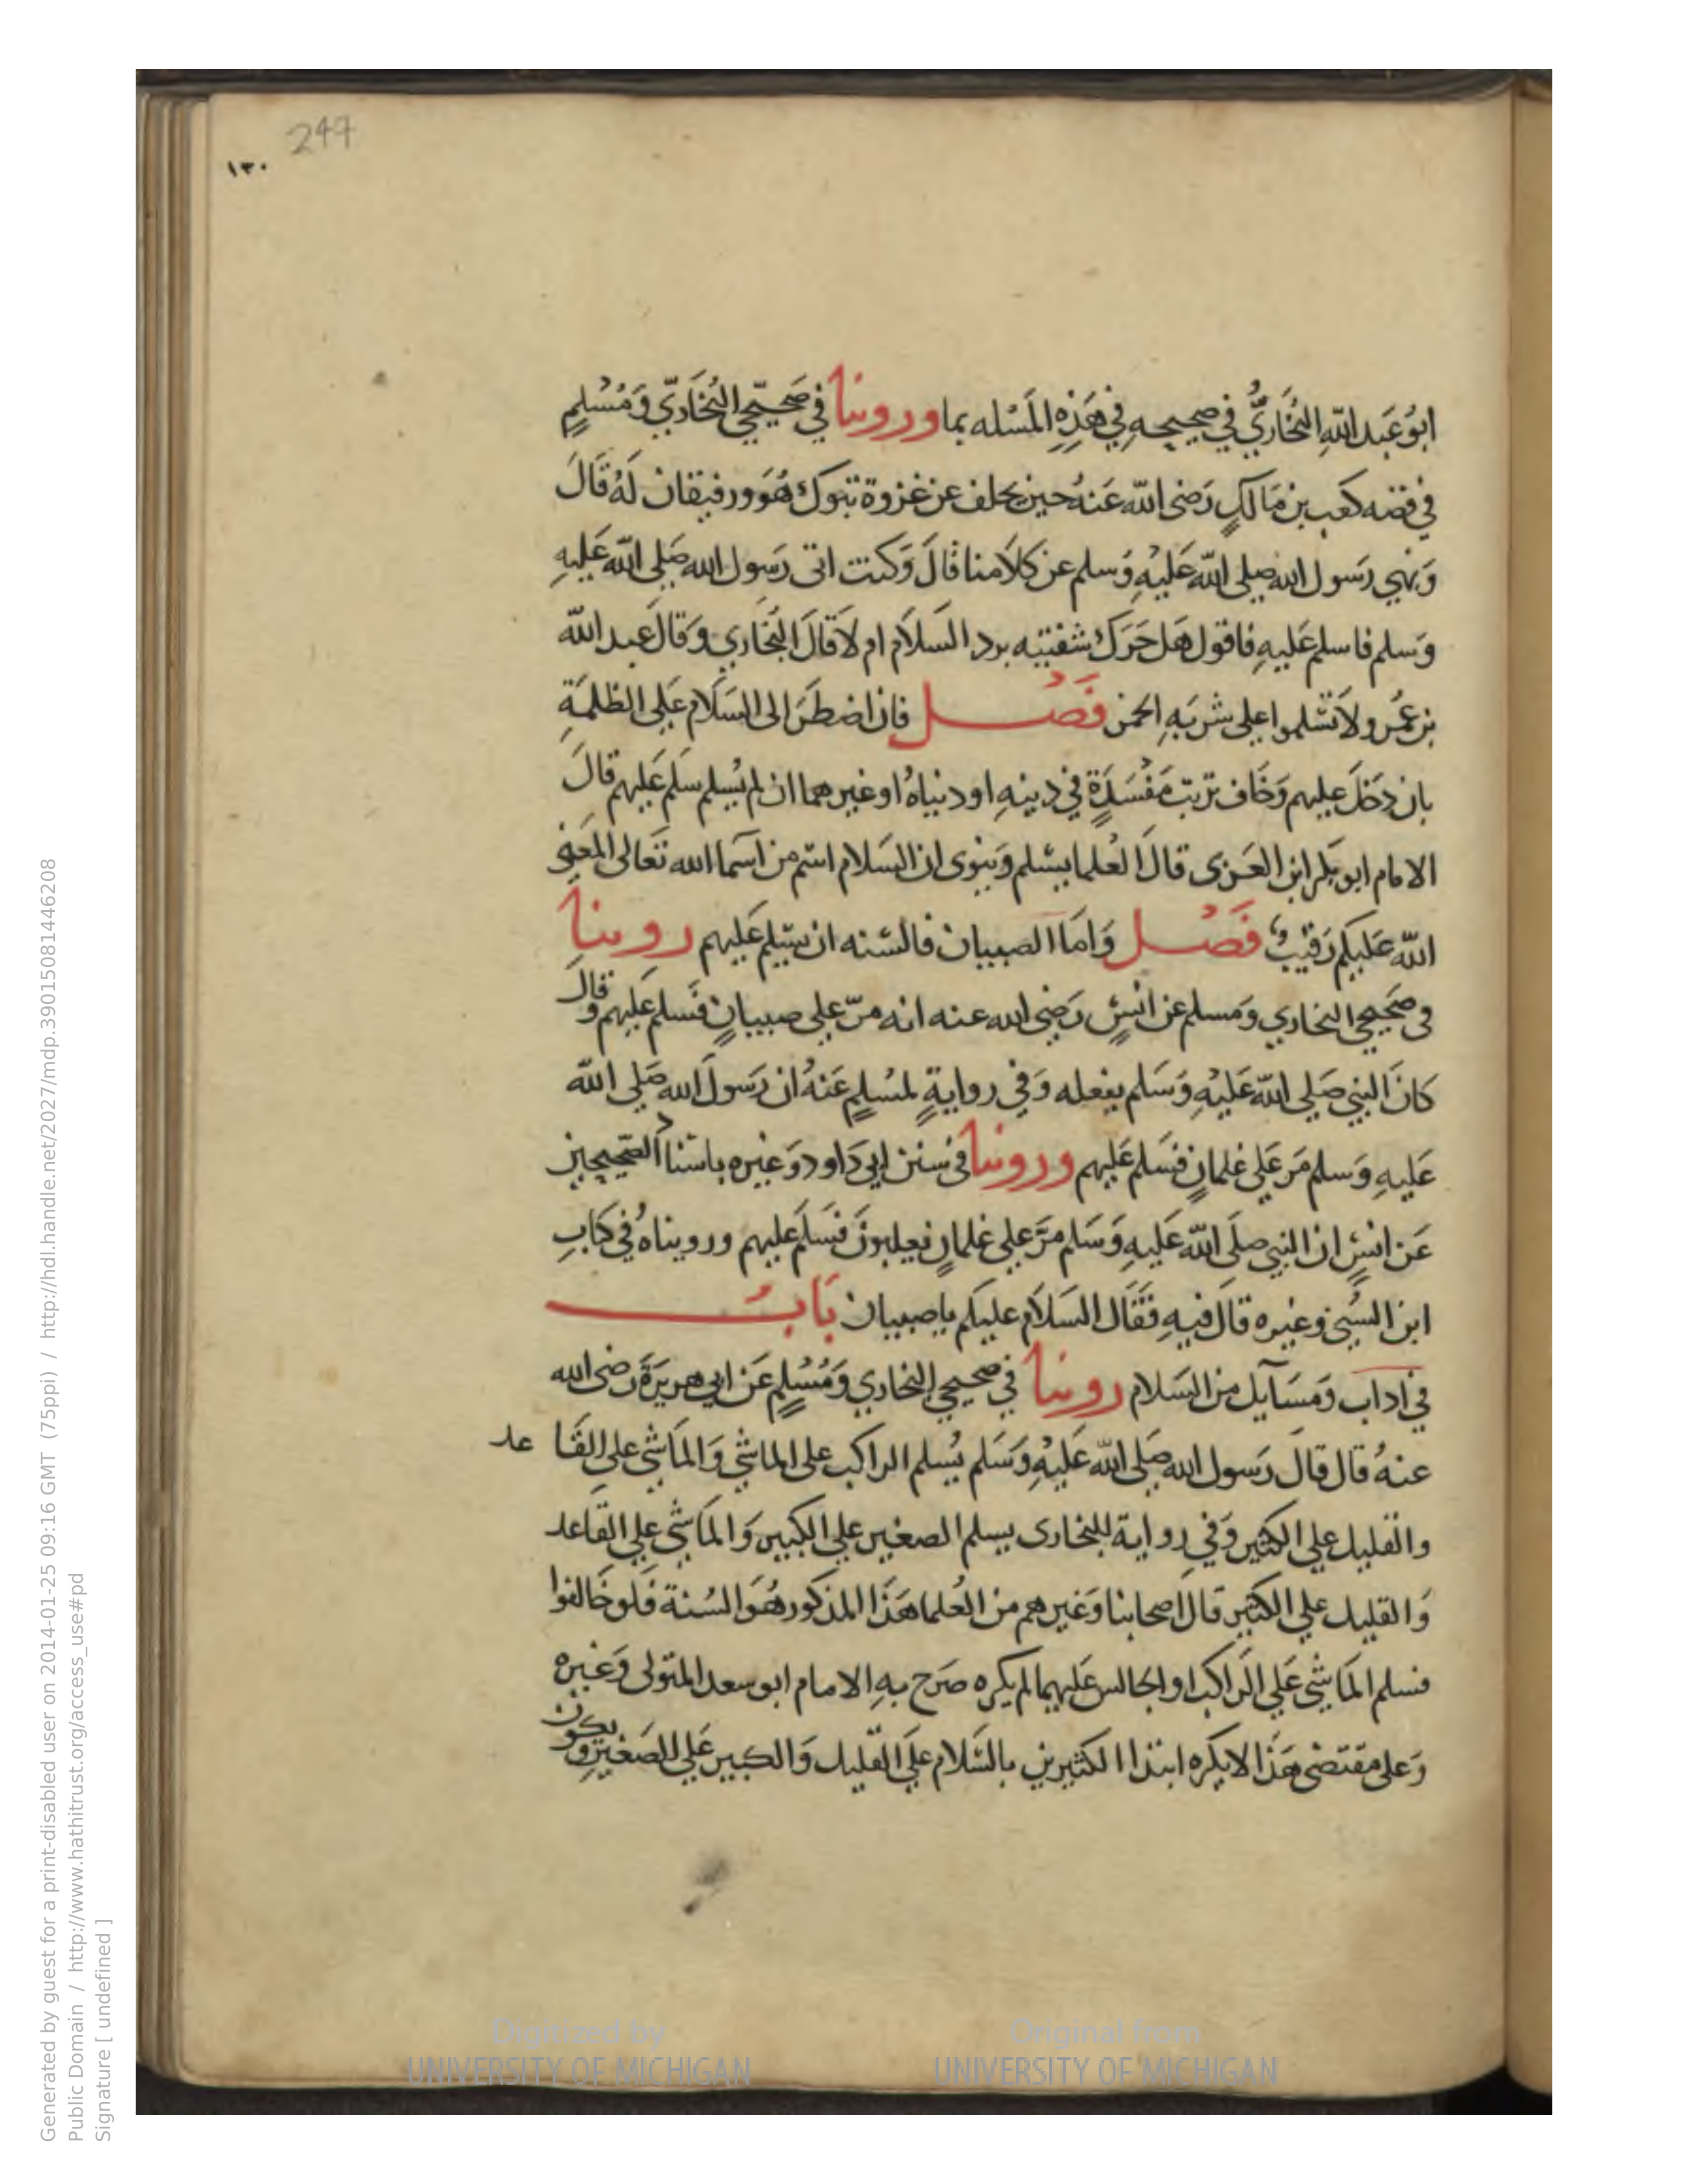 247
١٣٠
ابُو عَبد اللهِ البُخَارِيُّ في صحيحهِ في هَذِهِ المَسْله بما وروينا في صَحيحَي البُخَاريّ وَمُسْلمٍ
في قصه كعَب بن مَالكٍ رَضى الله عَنهُ حين تخلف عن غزوة تبوك هُوَ ورفيقان لَهُ قَالَ
وَنهي رَسول الله صلى الله عَليْهِ وَسلم عن كلامنا قالَ وَكنت اتى رَسول الله صَلى الله عَليهِ
وَسلم فاسلم عَليهِ فاقول هَل حَرَك شفتيه برد السَلاَم ام لاَ قالَ البُخَاري وَقالَ عبد الله
بن عُمر ولاَ تسْلموا على شربَهِ الخمر فَصْل فان اضطَرَ الى السَلام عَلى الظلمَةِ
بان دَخَلَ عليهم وَخَاف ترتب مَفْسَدَةٍ في دينهِ او دنياهُ او غيرهما ان لم يُسلم سَلم عَليهم قالَ
الامام ابو بَكر ابن العَزى قالَ العُلما يسْلم وَينوى ان السَلام اسْم من اسَما الله تَعالى المَعْنى
اللهُ عَليكم رَقيبٌ فَصْل وَامَا الصبيان فالسُنه ان يسَلم عَليهم روينا
في صَحيحي البخاري وَمسلم عن انسٍ رَضى الله عنه انه مرّ على صبيانٍ فسَلم عَليهم وَقال
كانَ النبي صَلى الله عَليْهِ وَسَلم يفعله وَفي روايةٍ لمسُلمٍ عَنهُ ان رَسولَ الله صَلى الله
عَليهِ وَسلم مَر عَلى غلمانٍ فسَلم عَليهم وروينا في سُنن ابي دَاود وَغيره باسْناد الصَحيحين
عَن انسٍ ان النبي صلى الله عَليهِ وَسَلم مَرَّ على غلمانٍ يعلبونَ فسَلمَ عَليهم ورويناهُ في كَتابِ
ابن السُني وغيره قالَ فيهِ فَقَالَ السَلاَم عليكم يا صبيان بَابُ
في ادَاب وَمَسَآيل من السَلام روينا في صحيحي البخاري وَمُسْلمٍ عَن ابي هريَرَةَ رَضى الله
عنهُ قال قالَ رَسول الله صَلى الله عَليْهِ وَسَلم يُسلم الراكب على الماشي وَالمَاشي على القَاعد
والقليل على الكثير وَفي رواية للبخارى يسلم الصغير على الكبير وَالمَاشى على القاعد
وَالقليل على الكثير قالَ اصحابنا وَغيرهم من العُلما هَذَا المذكور هُوَ السُنة فَلو خَالفوا
فسلم المَاشي عَلى الرَاكب او الجالس عَليهما لم يكره صَرح بهِ الامام ابو سعد المتولى وَغيره
وَعلى مقتضى هَذَا لا يكره ابتدا الكثيرين بالسَّلام عَلى القليل وَالكبير عَلى الصَغير وَيكون
Generated by guest for a print-disabled user on 2014-01-25 09:16 GMT (75ppi) / http://hdl.handle.net/2027/mdp.39015081446208
Public Domain / http://www.hathitrust.org/access_use#pd
Signature [ undefined ]
Digitized by
UNIVERSITY OF MICHIGAN
Original from
UNIVERSITY OF MICHIGAN